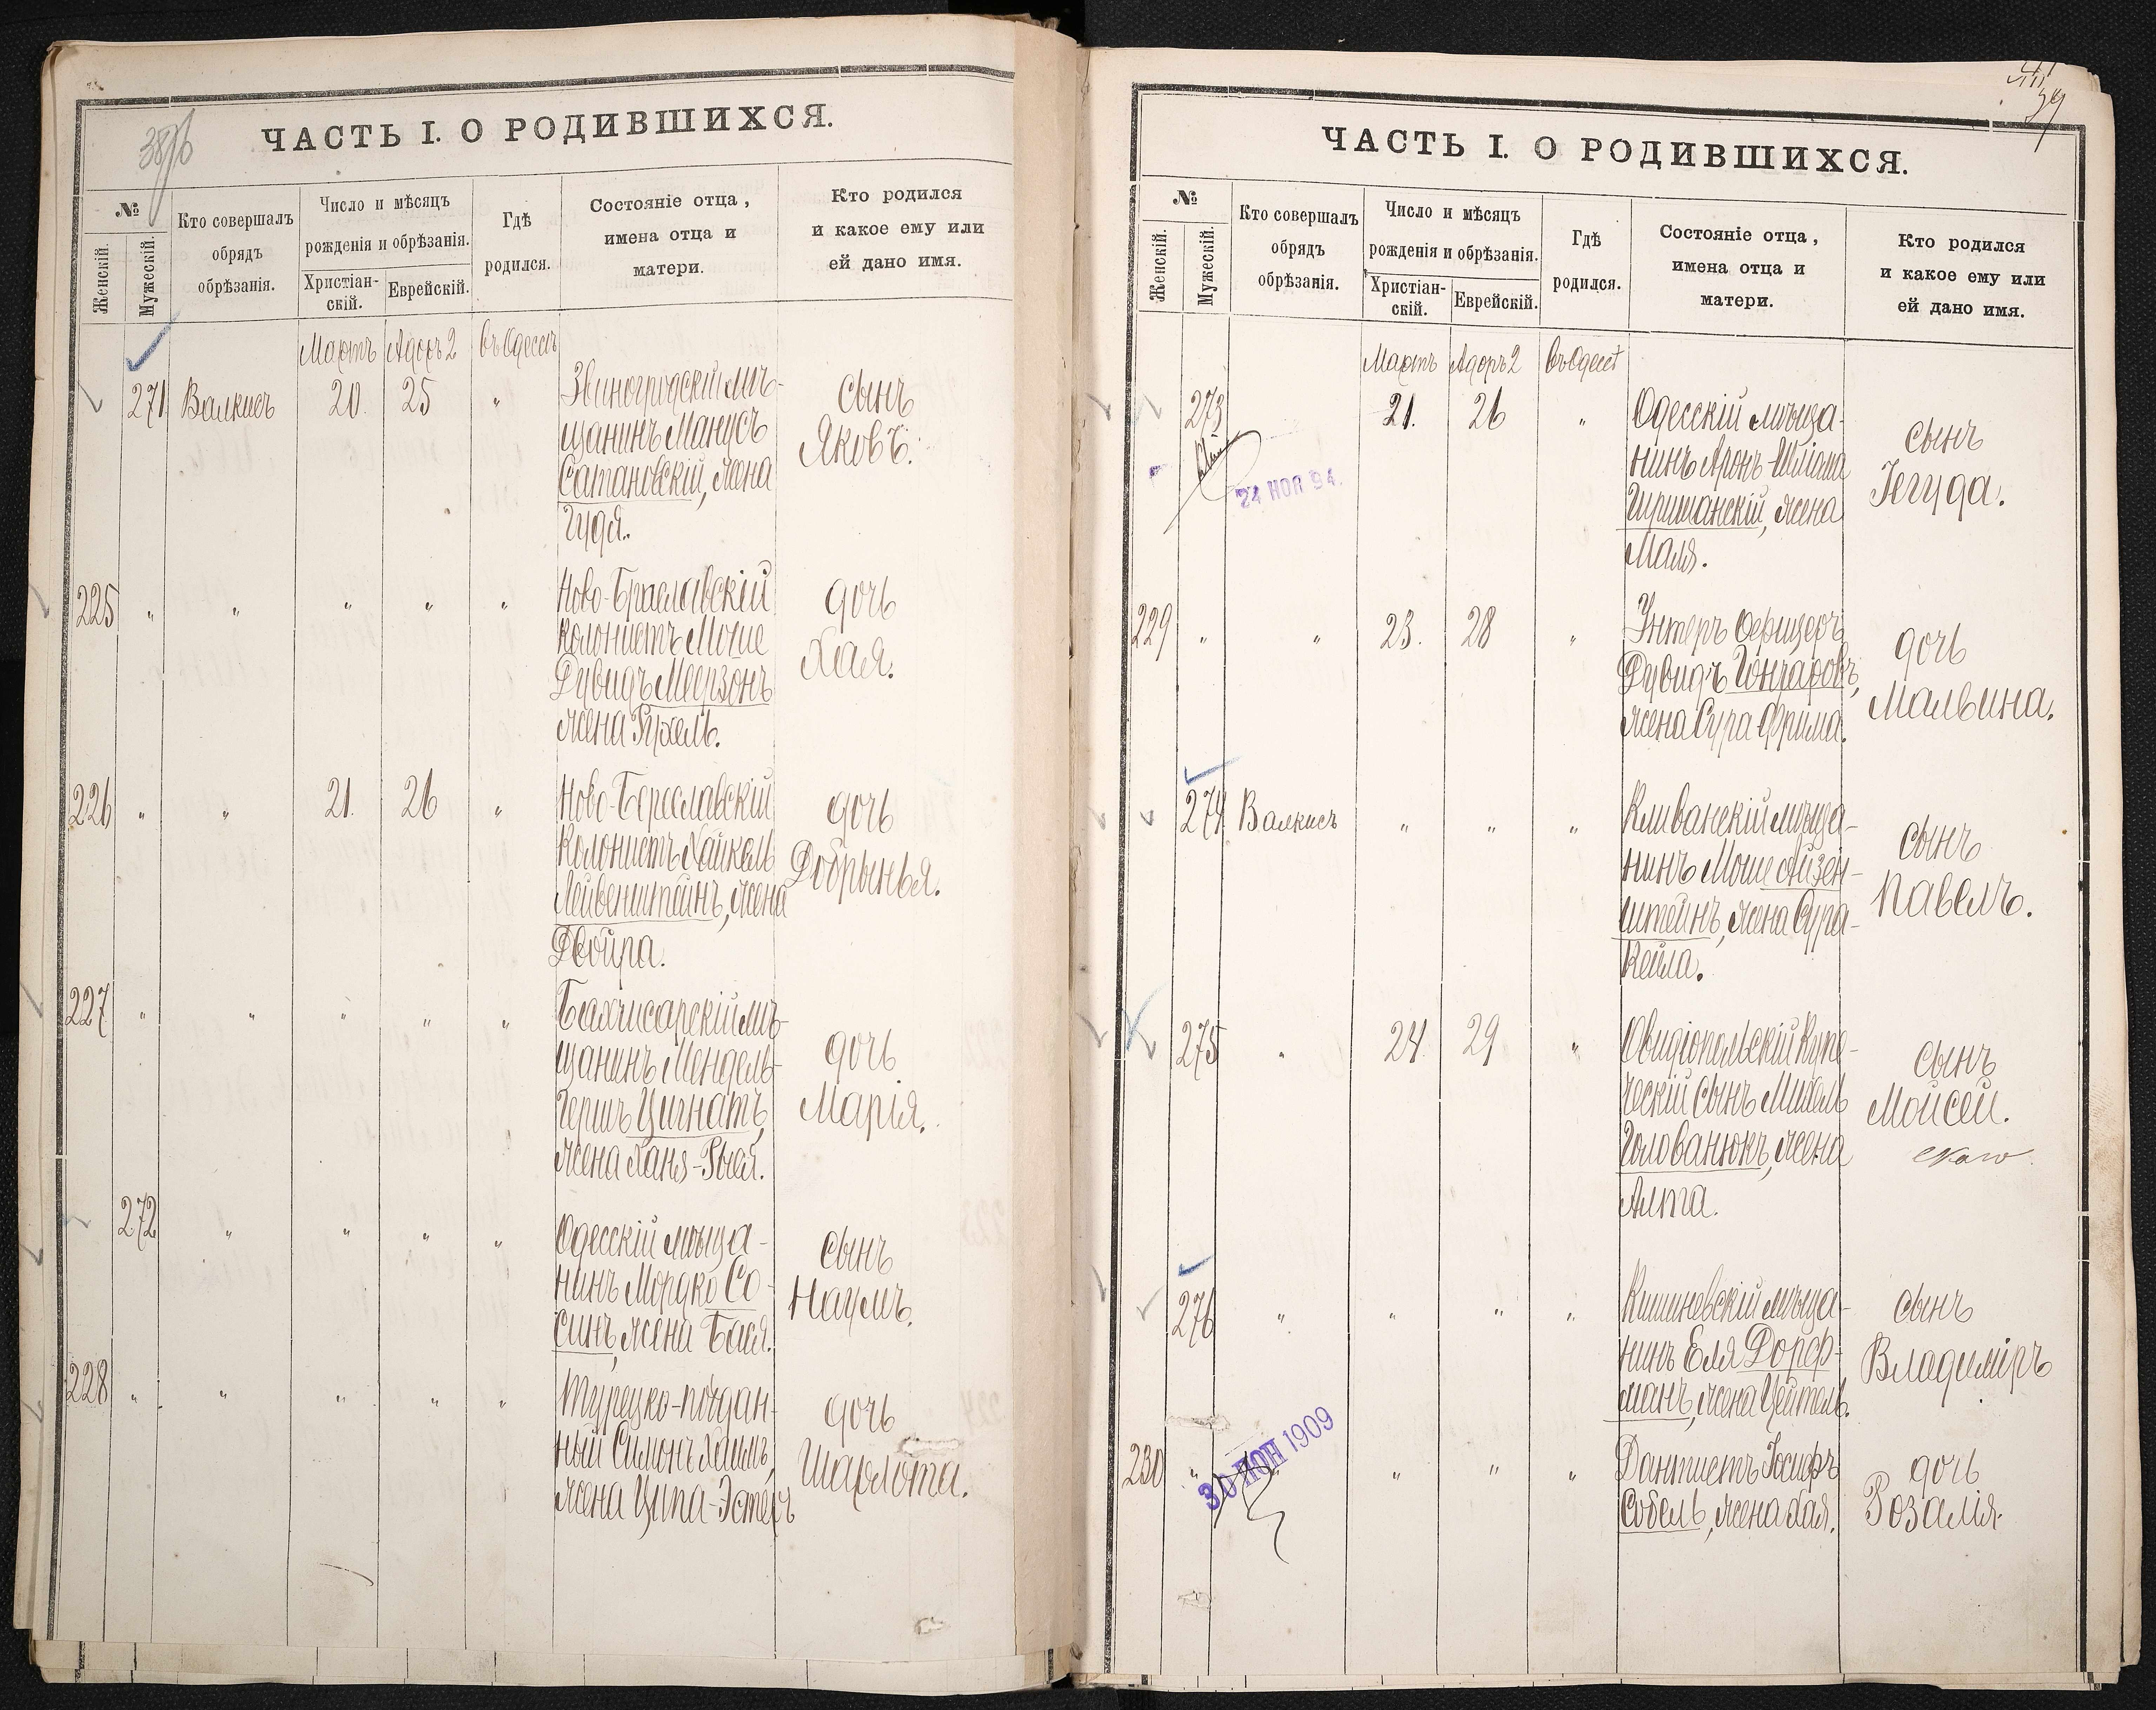 ЧАСТЬ I. О РОДИВШИХСЯ.
№
Женскій.
Мужескій.
Кто совершалъ
обрядъ
обрѣзанія.
Число и мѣсяцъ
рожденія и обрѣзанія.
Христіан-
скій.
Еврейскій.
Гдѣ
родился.
Состояніе отца,
имена отца и
матери.
Кто родился
и какое ему или
ей дано имя.
Мартъ Адаръ 2 въ Одессѣ
271 Валкисъ 20. 25 „ Звиногродскій мѣ-
щанинъ Манусъ
Сатановскій, жена
Гудя.
сынъ
Яковъ.
225 „ „ „ „ „ Ново-Браславскій
колонистъ Моше
Дувидъ Меерзонъ
жена Рухель.
дочь
Хая.
226 „ „ 21. 26 „ Ново-Береславскій
колонистъ Хайкель
Лейвенштейнъ, жена
Двойра.
дочь
Добрынья.
227 „ „ „ „ „ Бахчисарскій мѣ-
щанинъ Мендель-
Гершъ Цигнатъ,
жена Ханя-Рыся.
дочь
Марія.
272 „ „ „ „ Одесскій мѣща-
нинъ Мордко Со-
синъ, жена Бася.
сынъ
Наумъ.
228 „ „ „ „ „ Турецко-поддан-
ный Симонъ Хаимъ,
жена Ципа-Эстеръ
дочь
Шарлота.
39
ЧАСТЬ I. О РОДИВШИХСЯ.
№
Женскій.
Мужескій.
Кто совершалъ
обрядъ
обрѣзанія.
Число и мѣсяцъ
рожденія и обрѣзанія.
Христіан-
скій.
Еврейскій.
Гдѣ
родился.
Состояніе отца,
имена отца и
матери.
Кто родился
и какое ему или
ей дано имя.
Мартъ Адаръ 2 въ Одессѣ
273 21. 26 „ Одесскій мѣща-
нинъ Аронъ-Шлiома
Гиршанскій, жена
Маля.
сынъ
Іегуда.
24 НОЯ 94.
229 „ „ 23. 28 „ Унтеръ Офицеръ
Дувидъ Гончаровъ,
жена Сура Фрима.
дочь
Мальвина.
274 Валкисъ „ „ „ Клеванскій мѣща-
нинъ Моше Айзен-
штейнъ, жена Сура-
Кейла.
сынъ
Павелъ.
275 „ 24 29 „ Овидіопольскій Купе-
ческій сынъ Михель
Голованюкъ, жена
Алта.
сынъ
Мойсей.
276 „ „ „ „ Кишиневскій мѣща-
нинъ Еля Дорф-
манъ, жена Цейтель.
сынъ
Владиміръ
230 „ „ „ „ Дантистъ Іосифъ
Собель, жена Хая.
дочь
Розалія.
30 ІЮН 1909